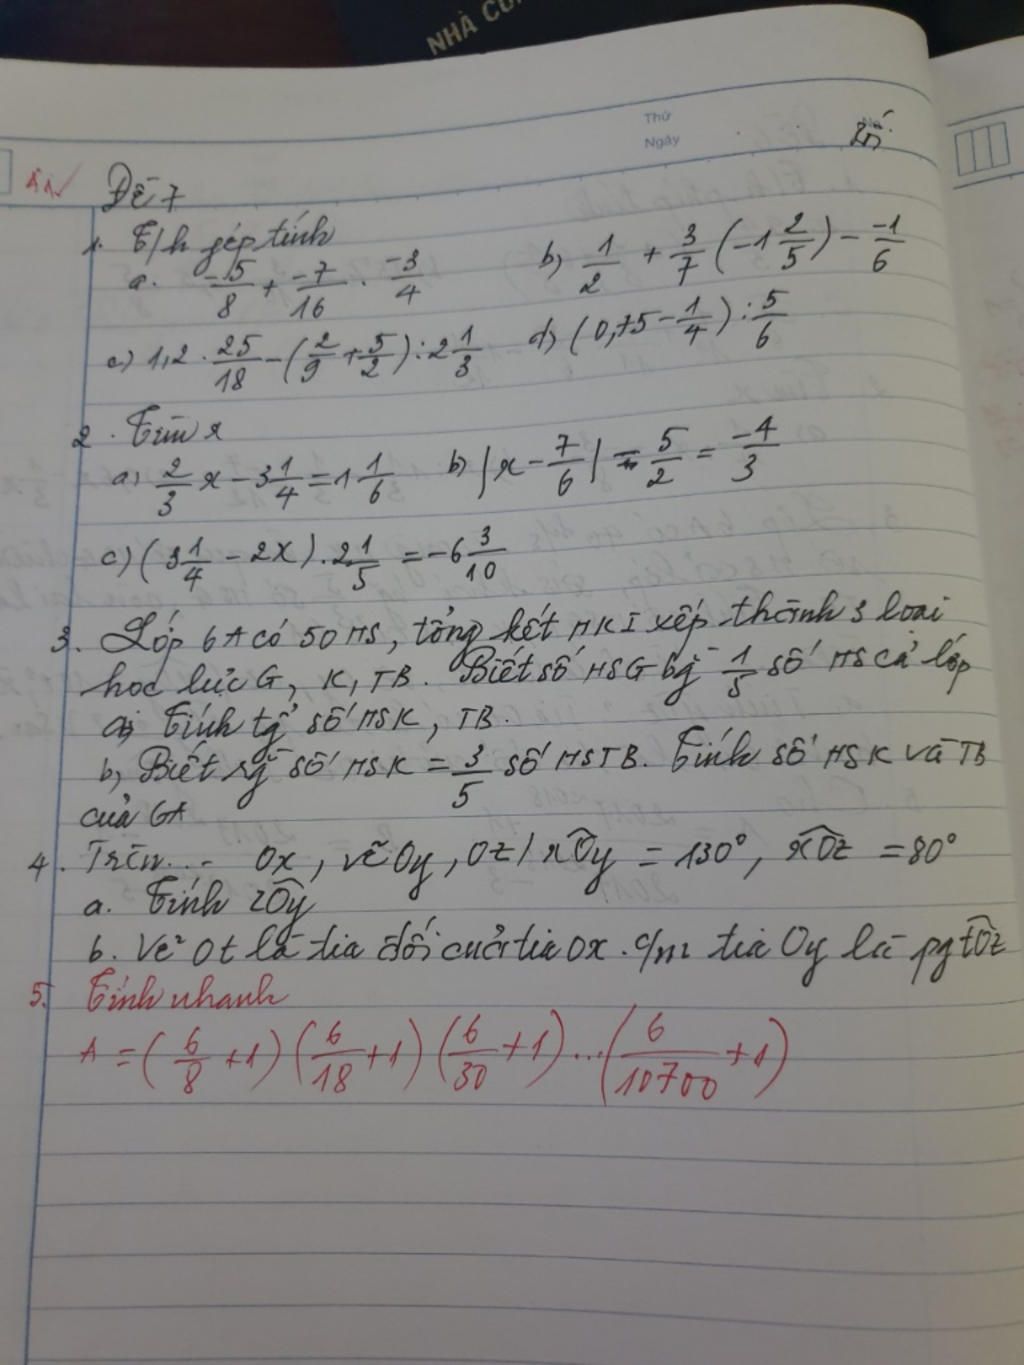 NHÀ CU
Thứ
Ngày
No.
Đề 7
1. T/h phép tính
a. -15/8 + -7/16 . -3/4 b) 1/2 + 3/7 (-1 2/5) - -1/6
c) 1,2 . 25/18 - (2/9 + 5/2) : 2 1/3 d) (0,75 - 1/4) : 5/6
2. Tìm x
a) 2/3 x - 3 1/4 = 1 1/6 b) |x - 7/6| - 5/2 = -4/3
c) (3 1/4 - 2x) . 2 1/5 = -6 3/10
3. Lớp 6A có 50 HS, tổng kết HKI xếp thành 3 loại
học lực G, K, TB. Biết số HSG bg 1/5 số HS cả lớp
a) Tính tg số HSK, TB.
b) Biết rg số HSK = 3/5 số HSTB. Tính số HSK và TB
của 6A
4. Trên... Ox, vẽ Oy, Oz / xÔy = 130°, xÔz = 80°
a. Tính zÔy
b. Vẽ Ot là tia đối của tia Ox. c/m tia Oy là pg tÔz
5. Tính nhanh
A = (6/8 + 1) (6/18 + 1) (6/30 + 1) ... (6/10700 + 1)